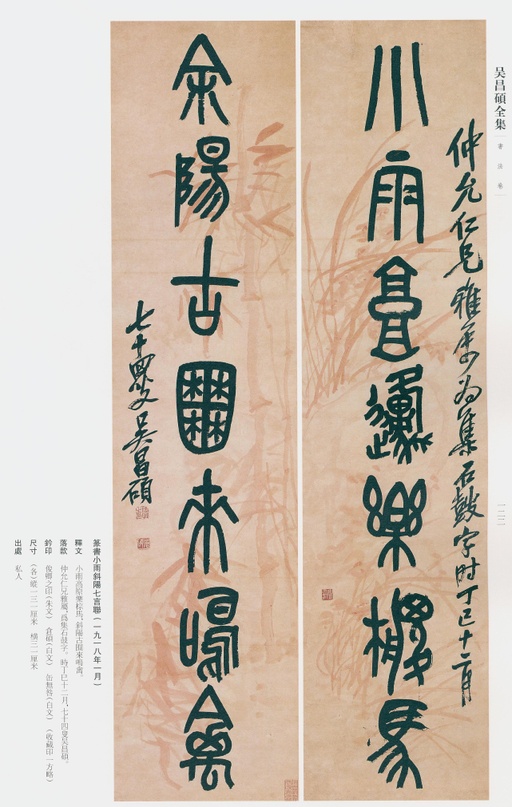 吴昌碩全集
書法卷
仲允仁兄雅屬為集石鼓字時丁巳十二月
小雨高原樂椶馬
斜陽古囿來鳴禽
七十四叟吴昌碩
一二二
篆書小雨斜陽七言聯（一九一八年一月）
釋文 小雨高原樂椶馬，斜陽古囿來鳴禽。
落款 仲允仁兄雅屬，為集石鼓字。時丁巳十二月，七十四叟吴昌碩。
鈐印 俊卿之印（朱文） 倉碩（白文） （收藏印一方略）
尺寸 （各）縱一三一厘米 橫三一厘米
出處 私人